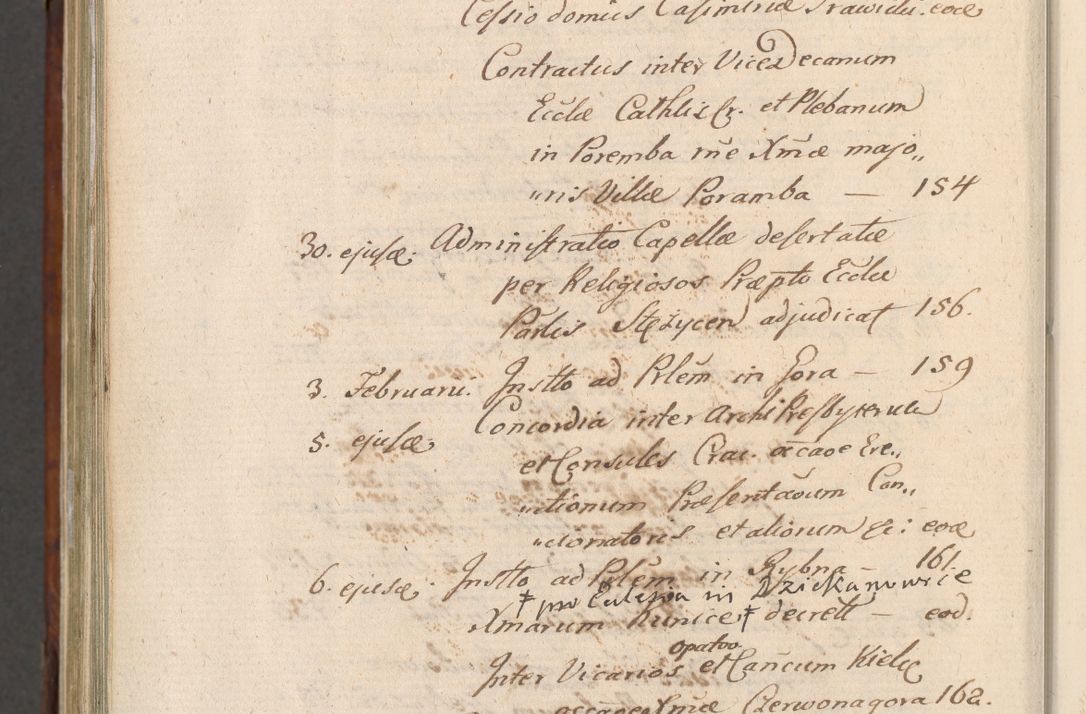 Cessio domus Casimiriæ Srawidii. eoæ
Contractus inter Vice Decanum
Ecclæ Cathlis Cr. et Plebanum
in Poremba rñe Xmæ majo„
„ris Villæ Poramba — 154
30. ejusæ. Administratio Capellæ desertatæ
per Religiosos Præpto Ecclæ
Parlis Stężycen adjudicat 156.
3. Februarii. Instto ad Plem in Gora — 159
5. ejusæ. Concordia inter ArchiPresbyterum
et Consules Crac. occaoe Ere„
„ctionum Præsentaoum Con„
„cionatoris et aliorum &c: eoæ
6. ejusæ. Instto ad Plem in Rybna — 161.
‡ pro Ecclesia in Dziekanowice
Xmarum Kunice ‡ decrett — eod.
opatoo
Inter Vicarios et Cancum Kielc
occaoe Xmæ Czerwonagora 162.